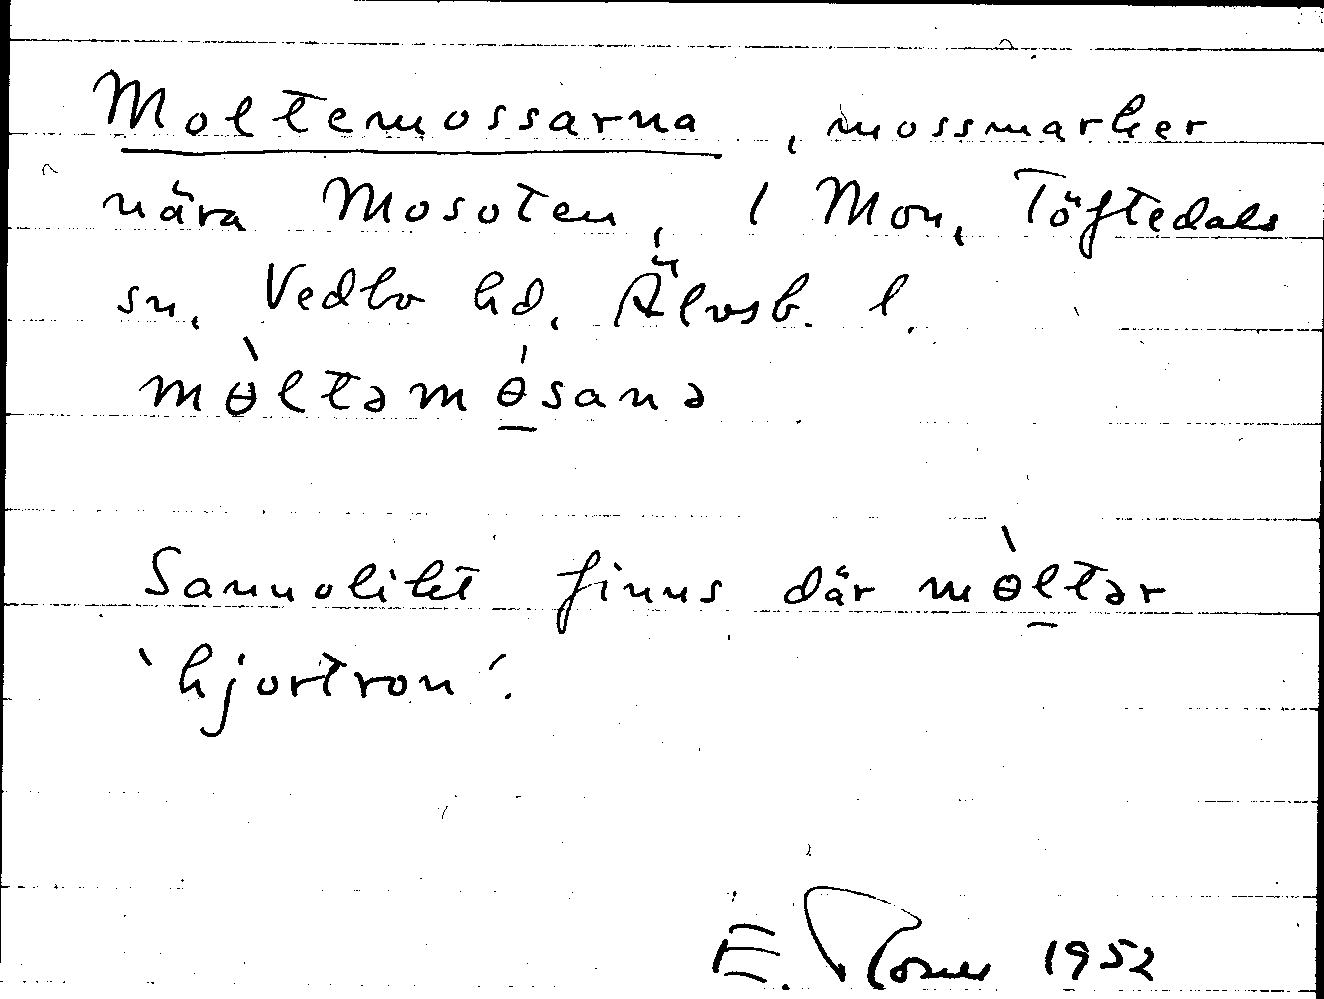 Moltemossarna, mossmarker
nära Mosoten, 1 Mon, Töftedals
sn, Vedbo hd, Älvsb. l.
mɵ̀ltəmɵ́sanə
Sannolikt finns där mɵ̀ltər
'hjortron'.
E. 1952